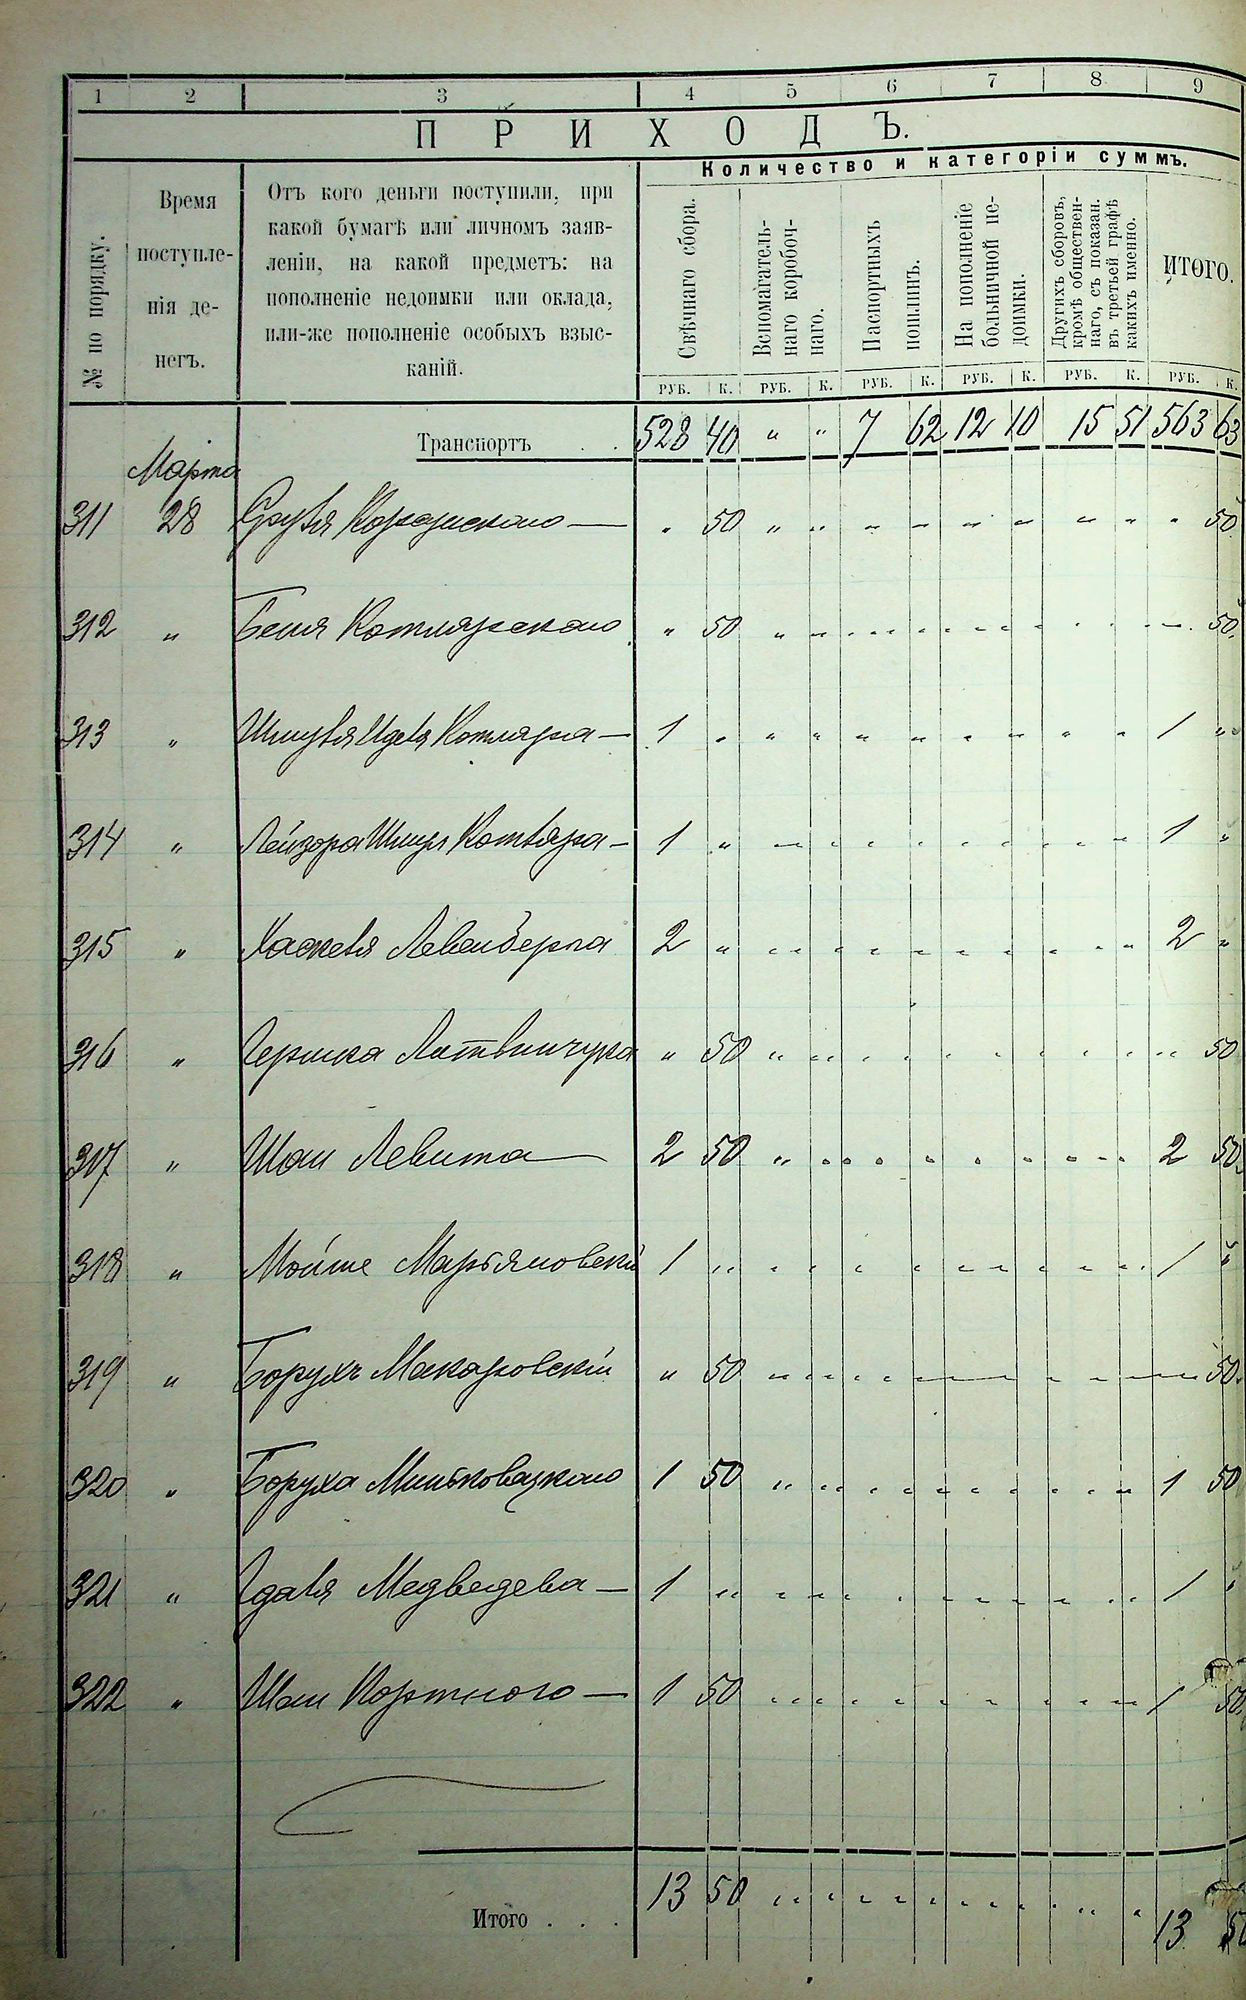 1 2 3 4 5 6 7 8 9
ПРИХОДЪ.
Количество и категоріи суммъ.
№ по порядку.
Время
поступле-
нія де-
негъ.
Отъ кого деньги поступили, при
какой бумагѣ или личномъ заяв-
леніи, на какой предметъ: на
пополненіе недоимки или оклада,
или-же пополненіе особыхъ взыс-
каній.
Свѣчнаго сбора.
Вспомагатель-
наго коробоч-
наго.
Паспортныхъ
пошлинъ.
На пополненіе
больничной не-
доимки.
Другихъ сборовъ,
кромѣ обществен-
наго, съ показан.
въ третьей графѣ
какихъ именно.
ИТОГО.
РУБ. К. РУБ. К. РУБ. К. РУБ. К. РУБ. К. РУБ. К.
Транспортъ . . 528 40 " " 7 62 12 10 15 51 563 63
Марта
311 28 50 50
312 " Беня Котлярскаго " 50 50
313 " Котляра — 1 1 "
314 " Лейзора Шмул Котляра — 1 " 1 "
315 " Хаскеля Левенберга 2 " 2 "
316 " Гершка Литвинчука " 50 50
317 " Шаи Левита — 2 50 2 50
318 " Мойше Марьяновскій 1 " 1 "
319 " Борухъ Макаровскій " 50 50
320 " Боруха 1 50 1 50
321 " Гдаля Медведева — 1 " 1 "
322 " Шаи Портного — 1 50 1 50
Итого . . . 13 50 13 50